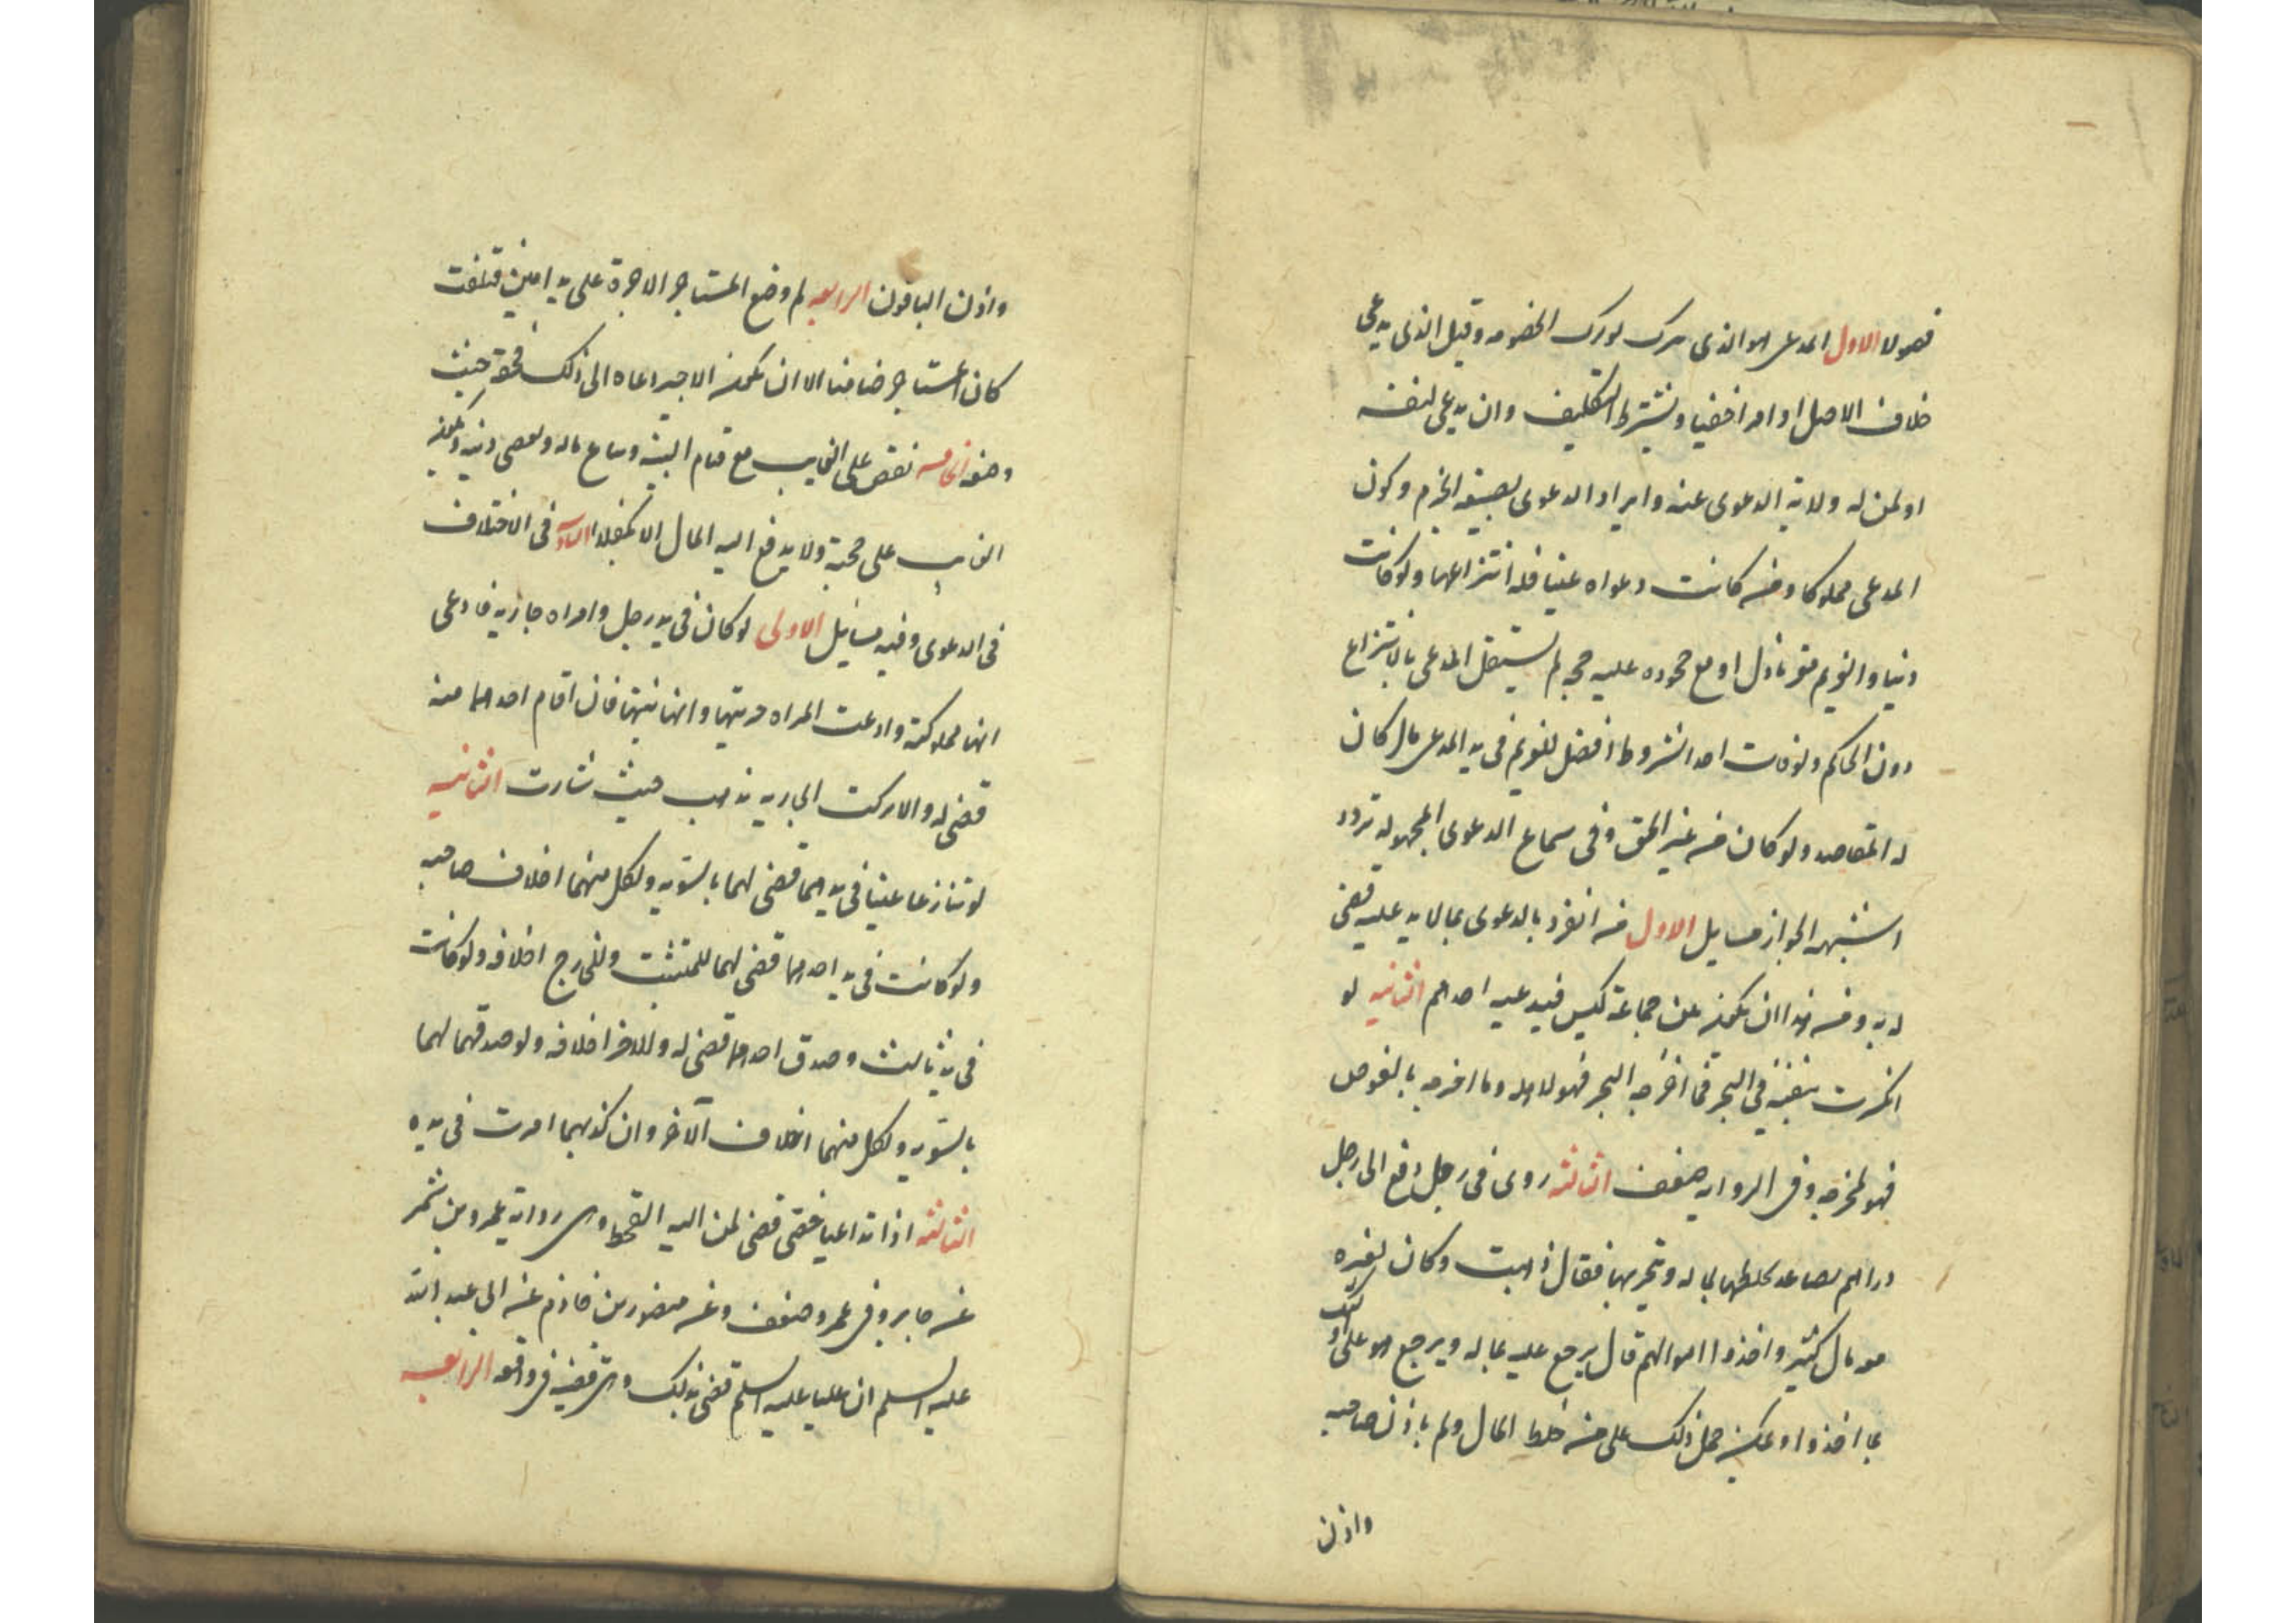 فصولا الاول المدعى هو الذى يترك لو ترك الخصومه وقيل الذى يدعى
خلاف الاصل او امرا خفيا ويشترط التكليف وان يدعى لنفسه
او لمن له ولاية الدعوى عنه وايراد الدعوى بصيغه الجزم وكون
المدعى مملوكا ومن كانت دعواه عينا فله انتزاعها ولو كانت
دينا والغريم مقر باذل او مع جحوده عليه حجه لم يستقل المدعى بالانتزاع
دون الحاكم ولو فات احد الشروط وحصل للغريم فى يد المدعى مال كان
له المقاصه ولو كان من غير الحق وفى سماع الدعوى المجهوله تردد
اشبهه الجواز مسايل الاول من انفرد بالدعوى بما لا يد عليه قضى
له به ومن هذا ان يكون بين جماعة كيس فيدعيه احدهم الثانيه لو
انكسرت سفينه فى البحر فما اخرجه البحر فهو لاهله وما اخرجه بالغوص
فهو لمخرجه وفى الروايه ضعف الثالثه روى فى رجل دفع الى رجل
دراهم بضاعه يخلطها بماله ويتجر بها فقال ذهبت وكان لغيره
معه مال كثير واخذوا اموالهم قال يرجع عليه بماله ويرجع هو على اولئك
بما اخذوا ويمكن حمل ذلك على من خلط المال ولم ياذن صاحبه
واذن
واذن الباقون الرابعه لو وضع المستاجر الاجرة على يد امين فتلفت
كان المستاجر ضامنا الا ان يكون الاجير دعاه الى ذلك فحقه حيث
وضعه الخامسه يقضى على الغايب مع قيام البينه ويباع ماله ويقضى دينه ويكون
الغايب على حجته ولا يدفع اليه المال الا بكفلاء السادسه فى الاختلاف
فى الدعوى وفيه مسايل الاولى لو كان فى يد رجل وامراه جاريه فادعى
انها مملوكته وادعت المراه حريتها وانها بنتها فان اقام احدهما بينه
قضى له والا تركت الجاريه تذهب حيث شاءت الثانيه
لو تنازعا عينا فى يدهما قضى لهما بالسويه ولكل منهما احلاف صاحبه
ولو كانت فى يد احدهما قضى لهما للمتشبث وللخارج احلافه ولو كانت
فى يد ثالث وصدق احدهما قضى له وللاخر احلافه ولو صدقهما لهما
بالسويه ولكل منهما احلاف الآخر وان كذبهما اقرت فى يده
الثالثه اذا تداعيا خصا قضى لمن اليه القمط وهى روايه عمرو بن شمر
عن جابر وفى عمرو ضعف وعن منصور بن حازم عن ابى عبد الله
عليه السلم ان عليا عليه السلم قضى بذلك وهى قضيه فى واقعه الرابعه